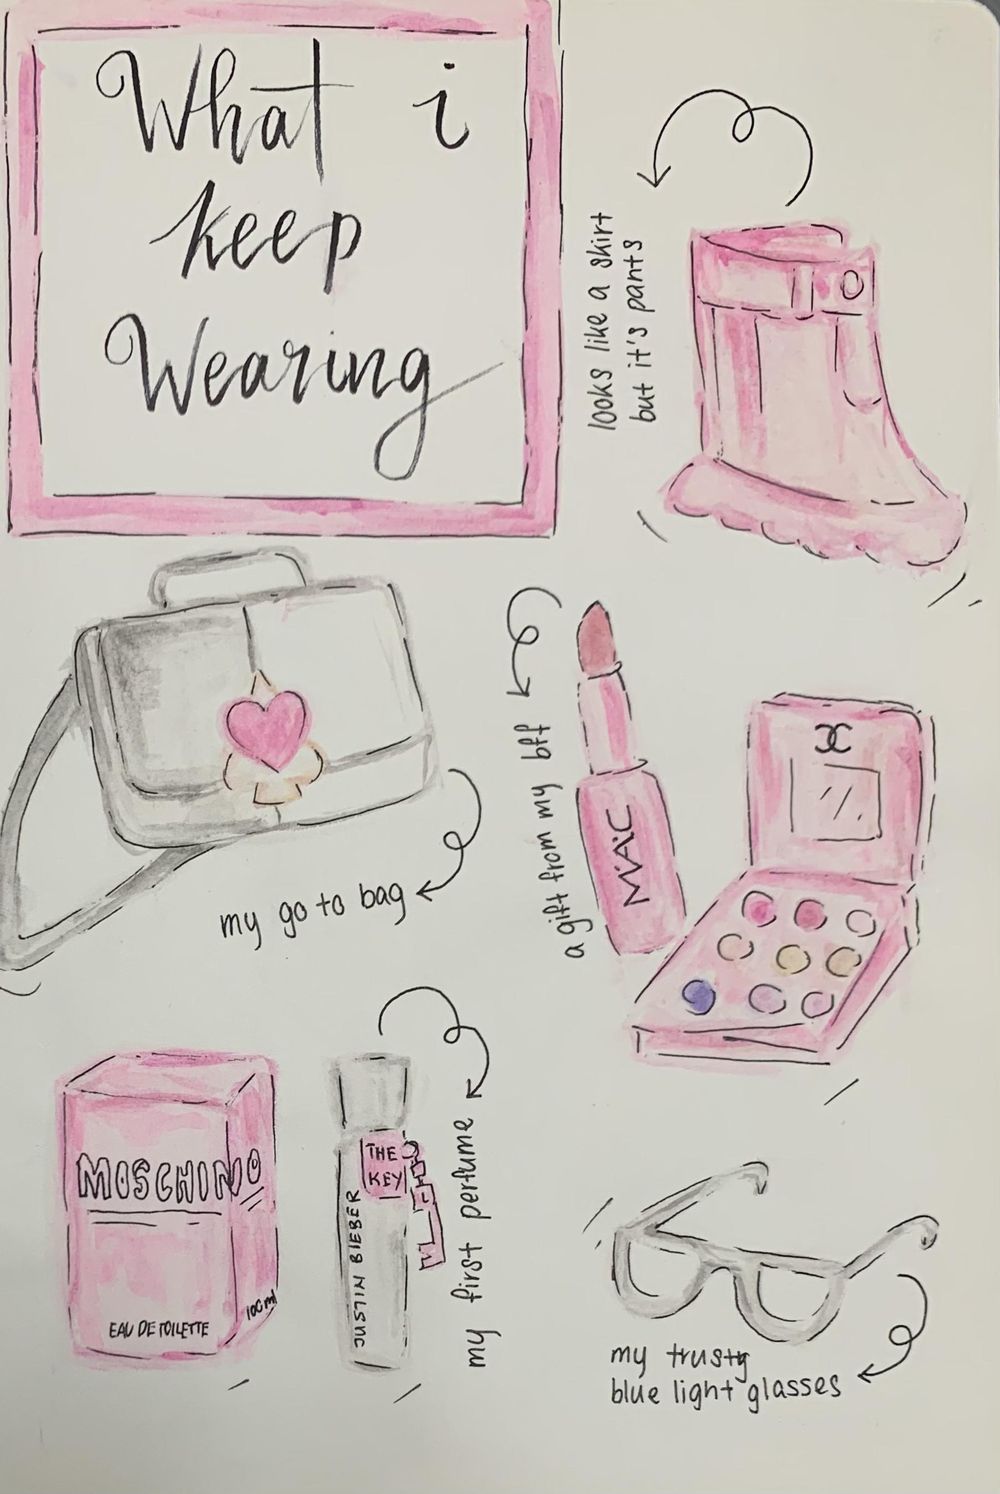 What i
keep
Wearing
looks like a skirt
but it's pants
my go to bag
a gift from my bff
MAC
MOSCHINO
EAU DE TOILETTE
100ml
THE
KEY
JUSTIN BIEBER
my first perfume
my trusty
blue light glasses